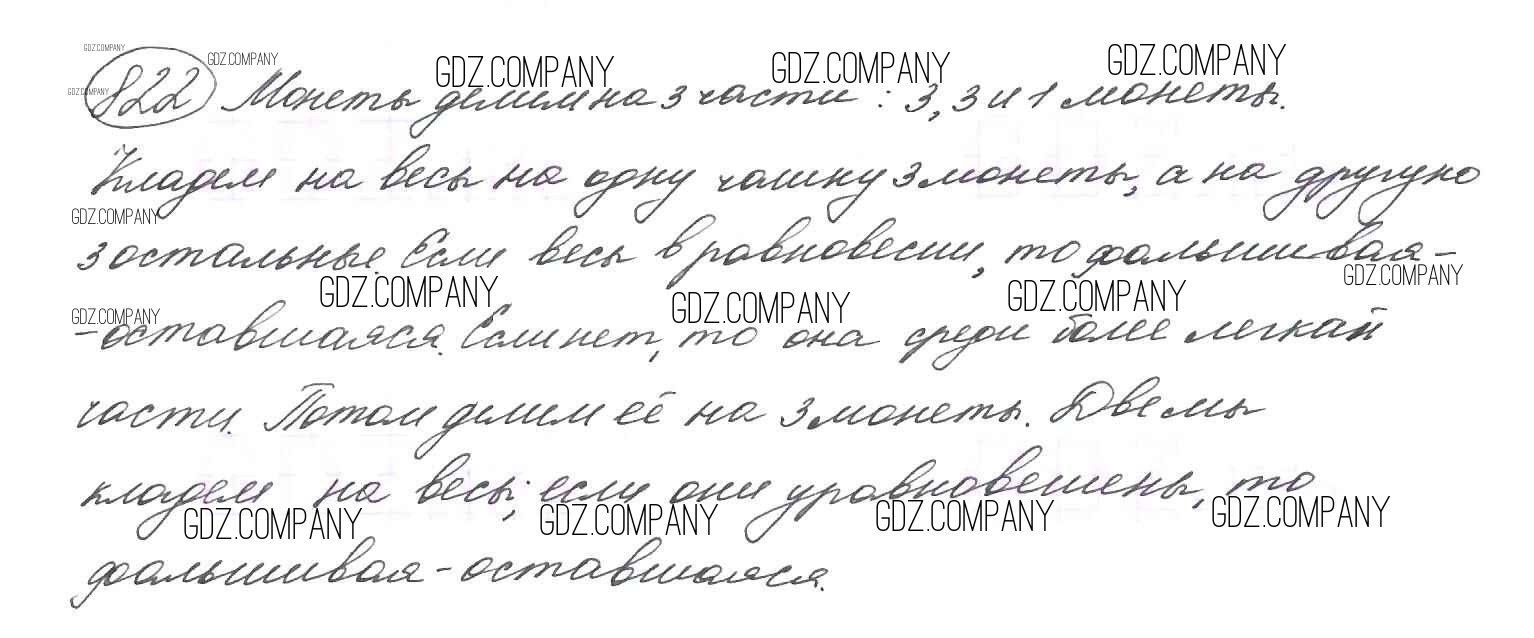 GDZ.COMPANY GDZ.COMPANY GDZ.COMPANY GDZ.COMPANY GDZ.COMPANY
GDZ.COMPANY 822 Монеты делим на 3 части: 3, 3 и 1 монеты.
Кладем на весы на одну чашку 3 монеты, а на другую
GDZ.COMPANY
3 остальные. Если весы в равновесии, то фальшивая -
GDZ.COMPANY GDZ.COMPANY GDZ.COMPANY GDZ.COMPANY
GDZ.COMPANY
- оставшаяся. Если нет, то она среди более легкой
части. Потом делим её на 3 монеты. Две мы
кладем на весы; если они уравновешены, то
GDZ.COMPANY GDZ.COMPANY GDZ.COMPANY GDZ.COMPANY
фальшивая - оставшаяся.